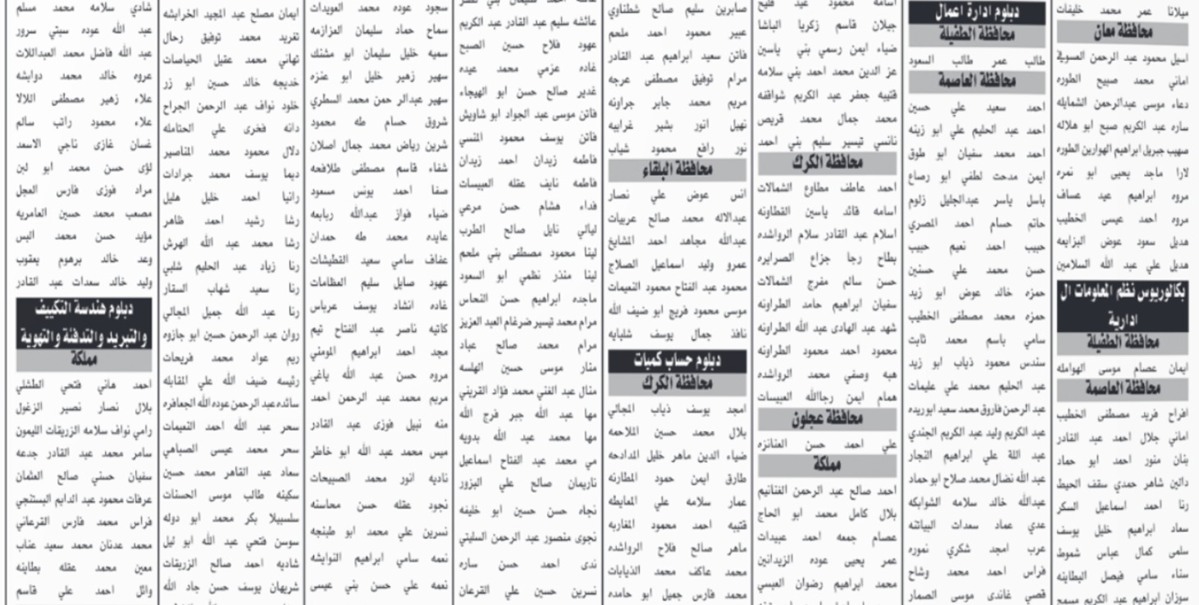 ميلانا عمر محمد خليفات
محافظة معان
اسيل محمود عبد الرحمن السويفي
اماني محمد صبيح الطوره
دعاء موسى عبدالرحمن الشمايله
ساره عبد الكريم صبح ابو هلاله
صهيب جبريل ابراهيم الهوارين الطوره
لارا ماجد يحيى ابو نمره
مروه ابراهيم عيد عساف
مروه احمد عيسى الخطيب
هديل سعود عوض البزايعه
هديل علي عبد الله السلامين
بكالوريوس نظم المعلومات ال
ادارية
محافظة الطفيلة
ايمان عصام موسى الهوامله
محافظة العاصمة
افراح فريد مصطفى الخطيب
اماني جلال احمد عبد القادر
بنان منور احمد ابو حماد
دائين شاهر حمدي سقف الحيط
رنا احمد اسماعيل السكر
سماد ابراهيم خليل يوسف
سلمى كمال عباس شموط
سناء سامي فيصل البطاينه
سوزان ابراهيم عبد الكريم مسمح
دبلوم ادارة اعمال
محافظة الطفيلة
طالب عمر طالب السعود
محافظة العاصمة
احمد سعيد علي حسين
احمد عبد الحليم علي ابو زينه
احمد محمد سفيان ابو طوق
ايمن مدحت لطفي ابو رصاع
باسل ياسر عبدالجليل زلوم
حاتم حسام احمد المصري
حبيب احمد نعيم حبيب
حسن محمد علي حسنين
حمزه خالد عوض ابو زيد
حمزه محمد مصطفى الخطيب
سامي باسم محمد ثابت
سندس محمود ذياب ابو زيد
عبد الحليم محمد علي عليمات
عبد الرحمن فاروق محمد سعيد ابوريده
عبد الكريم وليد عبد الكريم الجندي
عبد اللة علي ابراهيم النجار
عبد الله نضال محمد صلاح ابو حماد
عبدالله خالد سلامه الشوابكه
عدي عماد سعدات البياتنه
عرب امجد شكري نموره
فراس احمد محمد وشاح
قصي غاندي موسى الصمار
اسامه محمود عبد فليح
جيلان قاسم زكريا الباشا
ضياء ايمن رسمي بني ياسين
عز الدين محمد احمد بني سلامه
قتيبه جعفر عبد الكريم شوافقه
محمد جمال محمد قريص
نانسي تيسير سليم بني احمد
محافظة الكرك
احمد عاطف مطاوع الشمالات
اسامه قائد ياسين القطاونه
اسلام عبد القادر سلام الرواشده
بطاح رجا جزاع الصرايره
حسن سالم مفرج الشمالات
سفيان ابراهيم حامد الطراونه
شهد عبد الهادى عبد الله الطراونه
محمود احمد محمود الطراونه
هبه وصفي محمد الطراونه
همام ايمن رجاالله العبيسات
محافظة عجلون
علي احمد حسن العنانزه
مملكة
احمد صالح عبد الرحمن الغنانيم
بلال كامل محمد ابو الحاج
عصام جمعه احمد عبيدات
عمر يحيى عوده الزيدانين
محمد ابراهيم رضوان العيسى
صابرين سليم صالح شطناوي
عبير محمود احمد ملحم
فاتن سعيد ابراهيم عبد القادر
مرام توفيق مصطفى عرجه
مريم محمد جابر جراونه
نهيل انور بشير غرايبه
نور رافع محمود شياب
محافظة البلقاء
انس عوض علي نصار
عبدالاله محمد صالح عربيات
عبدالله مجاهد احمد المشايخ
عمرو وليد اسماعيل الصلاج
محمود عبد الفتاح محمود النعيمات
موسى محمود فريج ابو ضيف الله
نافذ جمال يوسف شلبايه
دبلوم حساب كميات
محافظة الكرك
امجد يوسف ذياب المجالي
بلال محمد حسين الملاحمه
ضياء الدين ماهر خليل المدادحه
طارق ايمن حمود المطارنه
عمار سلامه علي المعايطه
قتيبه احمد محمود المغاربه
ماهر صالح فلاح الرواشده
محمد عاكف محمد الذيابات
محمد فارس جميل ابو حامده
عائشه سليم عبد القادر عبد الكريم
عهود فلاح حسين الصبح
غاده عزمي محمد عبده
غدير صالح حسن ابو الهيجاء
فاتن موسى عبد الجواد ابو شاويش
فاتن يوسف محمود المنسي
فاطمه زيدان احمد زيدان
فاطمه نايف عقله العبيسات
فداء هشام حسن مرعي
ليالي نايل صالح الطرب
لينا محمود مصطفى بني ملحم
لينا منذر نظمي ابو السعود
ماجده ابراهيم حسن النحاس
مرام محمد تيسير ضرغام العبد العزيز
مرام محمد صالح عباد
منار موسى حسين الهلسه
منال عبد الغني محمد فؤاد القريني
مها عبد الله جبر فرج الله
مها محمد عبد الله بدويه
مي محمد عبد الفتاح اسماعيل
ناريمان صالح علي البزور
نجاه حسن حسين ابو خليفه
نجوى منصور عبد الرحمن السليتي
ندى احمد حسن ساره
نسرين حسين علي القرعان
سجود عوده محمد العويدات
سماح حماد سليمان العزازمه
سميه خليل سليمان ابو مشنك
سهير زهير خليل ابو عنزه
سهير عبدالر حمن محمد السطري
شروق حسام طه محمود
شرين رياض محمد جمال اصلان
شفاء قاسم مصطفى طلافحه
صفا احمد يونس مسعود
ضياء فواز عبدالله ربابعه
عايده محمد طه حمدان
عفاف سامي سعيد القطيشات
عهود صايل سليم العظامات
غاده انشاد يوسف عرباس
كاتيه ناصر عبد الفتاح تيم
مجد احمد ابراهيم المومني
مروه حسن عبد الله ياغي
مريم محمد عبد الرحمن احمد
منه نبيل فوزى عبد القادر
ميس محمد عبد الله ابو خاطر
ناديه انور محمد الصبيحات
نجود عقله حسن محاسنه
نسرين علي محمد ابو طبنجه
نعمه سامي ابراهيم التوايشه
نعمه علي حسن بني عيسى
ايمان مصلح عبد المجيد الخرابشه
تغريد محمد توفيق رحال
تهاني محمد عقيل الحياصات
خديجه خالد حسين ابو زر
خلود نواف عبد الرحمن الجراح
دانه فخرى علي الحتامله
دلال محمود محمد المناصير
ديما يوسف محمد جرادات
رانيا احمد خليل هليل
رشا رشيد احمد ظاهر
رشا محمد عبد الله الهرش
رنا زياد عبد الحليم شلبي
رنا سعيد شهاب السقار
رنا عبد الله جميل المجالي
روان عبد الرحمن حسين ابو جازوه
ريم عواد محمد فريحات
رئيسه ضيف الله علي المقابله
سائده عبد الرحمن عوده الله الجعافره
سحر عبد الله احمد النعيمات
سحر محمد عيسى الصباهي
سعاد عبد القاهر محمد حسين
سكينه طالب موسى الحسنات
سلسبيلا بكر محمد ابو دوله
سوسن فتحي عبد الله ابو ليل
شاديه احمد صالح الزريقات
شريهان يوسف حسن جاد الله
شادي سلامه محمد مسلم
عبد الله عوده سبتي سرور
عبد الله فاضل محمد العبداللات
عروه خالد محمد دوابشه
علاء زهير مصطفى اللالا
علاء محمود راتب سالم
غسان غازى ناجي الاسعد
لؤى حسن محمد ابو لبن
مراد فوزى فارس العجل
مصعب محمد حسين العامريه
مؤيد حسن محمد البس
وعد خالد برهوم يعقوب
وليد خالد سعدات عبد القادر
دبلوم هندسة التكييف
والتبريد والتدفئة والتهوية
مملكة
احمد هاني فتحي الطشلي
بلال نصار نصير الزغول
رامي نواف سلامه الزريقات الليمون
سامر محمد عبد القادر جدعه
سفيان حسني صالح العثمان
عرفات محمود عبد الدايم البستنجي
فراس محمد فارس القرعاني
محمد عدنان محمد سعيد عناب
معين محمد عقله بطاينه
وائل احمد علي قاسم